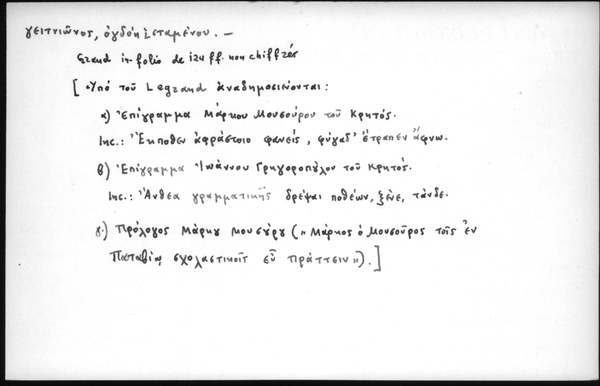 γειτνιῶνος, ὀγδόῃ ἱσταμένου. —
Grand in-folio de 124 ff. non chiffrés
[ Ὑπό τοῦ Legrand ἀναδημοσιεύονται:
α) Ἐπίγραμμα Μάρκου Μουσούρου τοῦ Κρητός.
Inc.: Ἔκποθεν ἀφράστοιο φανείς, φύγαδ' ἔτραπεν ἄφνω.
β) Ἐπίγραμμα Ἰωάννου Γρηγοροπύλου τοῦ Κρητός.
Inc.: Ἄνθεα γραμματικῆς δρέψαι ποθέων, ξένε, τάνδε.
γ.) Πρόλογος Μάρκου Μουσούρου („Μάρκος ὁ Μουσοῦρος τοῖς ἐν
Παταβίῳ σχολαστικοῖς εὖ πράττειν„).]